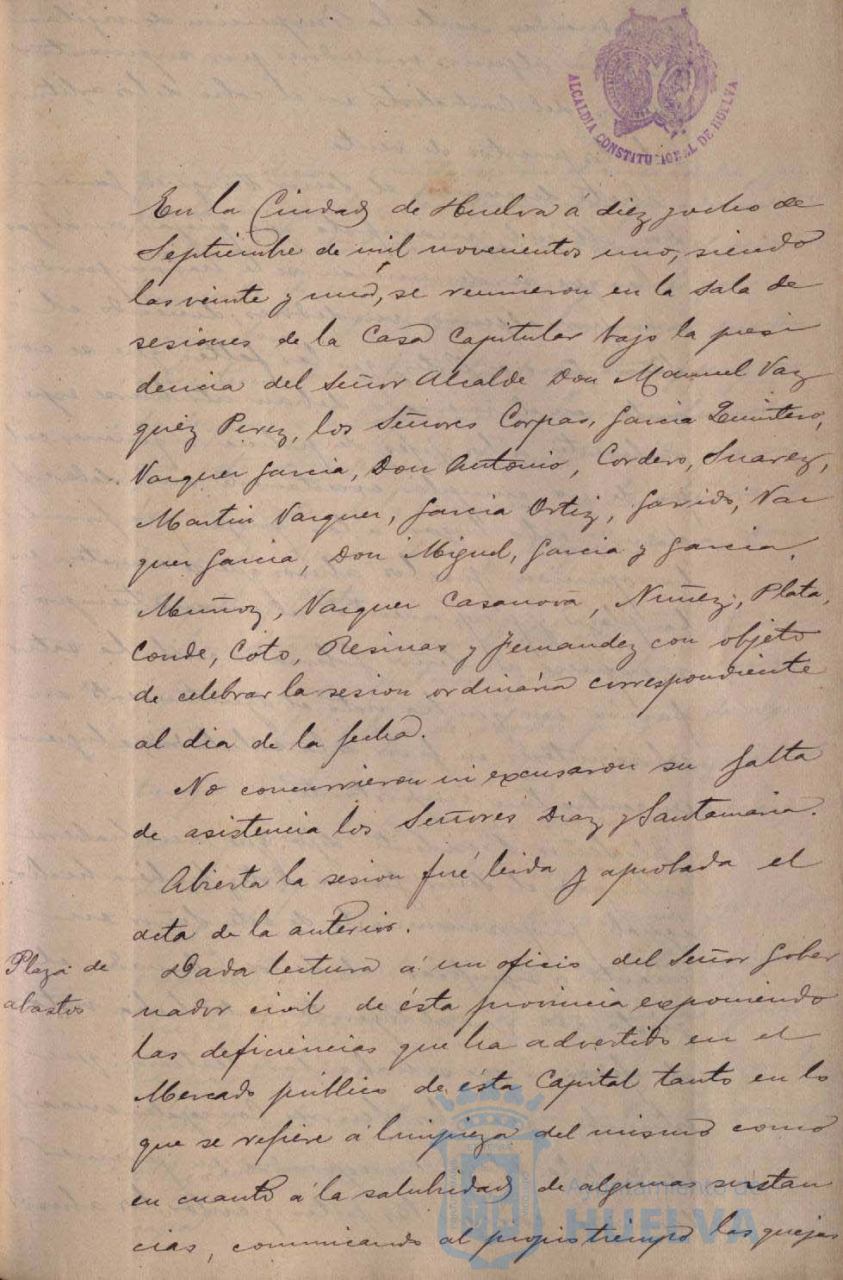 ALCALDIA CONSTITUCIONAL DE HUELVA
En la Ciudad de Huelva á diez y ocho de
Septiembre de mil novecientos uno, siendo
las veinte y una, se reunieron en la sala de
sesiones de la Casa Capitular bajo la presi
dencia del Señor Alcalde Don Manuel Vaz
quez Perez, los Señores Corpas, Garcia Quintero,
Vazquez Garcia, Don Antonio, Cordero, Suarez,
Martin Vazquez, Garcia Ortiz, Garrido, Vaz
quez Garcia, Don Miguel, Garcia y Garcia,
Muñoz, Vazquez Casanova, Nuñez, Plata,
Conde, Coto, Resinas y Fernandez con objeto
de celebrar la sesion ordinaria correspondiente
al dia de la fecha.
No concurrieron ni excusaron su falta
de asistencia los Señores Diaz y Santamaria.
Abierta la sesion fué leida y aprobada el
acta de la anterior.
Plaza de
abastos
Dada lectura á un oficio del Señor Gober
nador civil de ésta provincia exponiendo
las deficiencias que ha advertido en el
Mercado público de ésta Capital tanto en lo
que se refiere á limpieza del mismo como
en cuanto á la salubridad de algunas sustan
cias, comunicando al propio tiempo las quejas
Ayuntamiento de
HUELVA